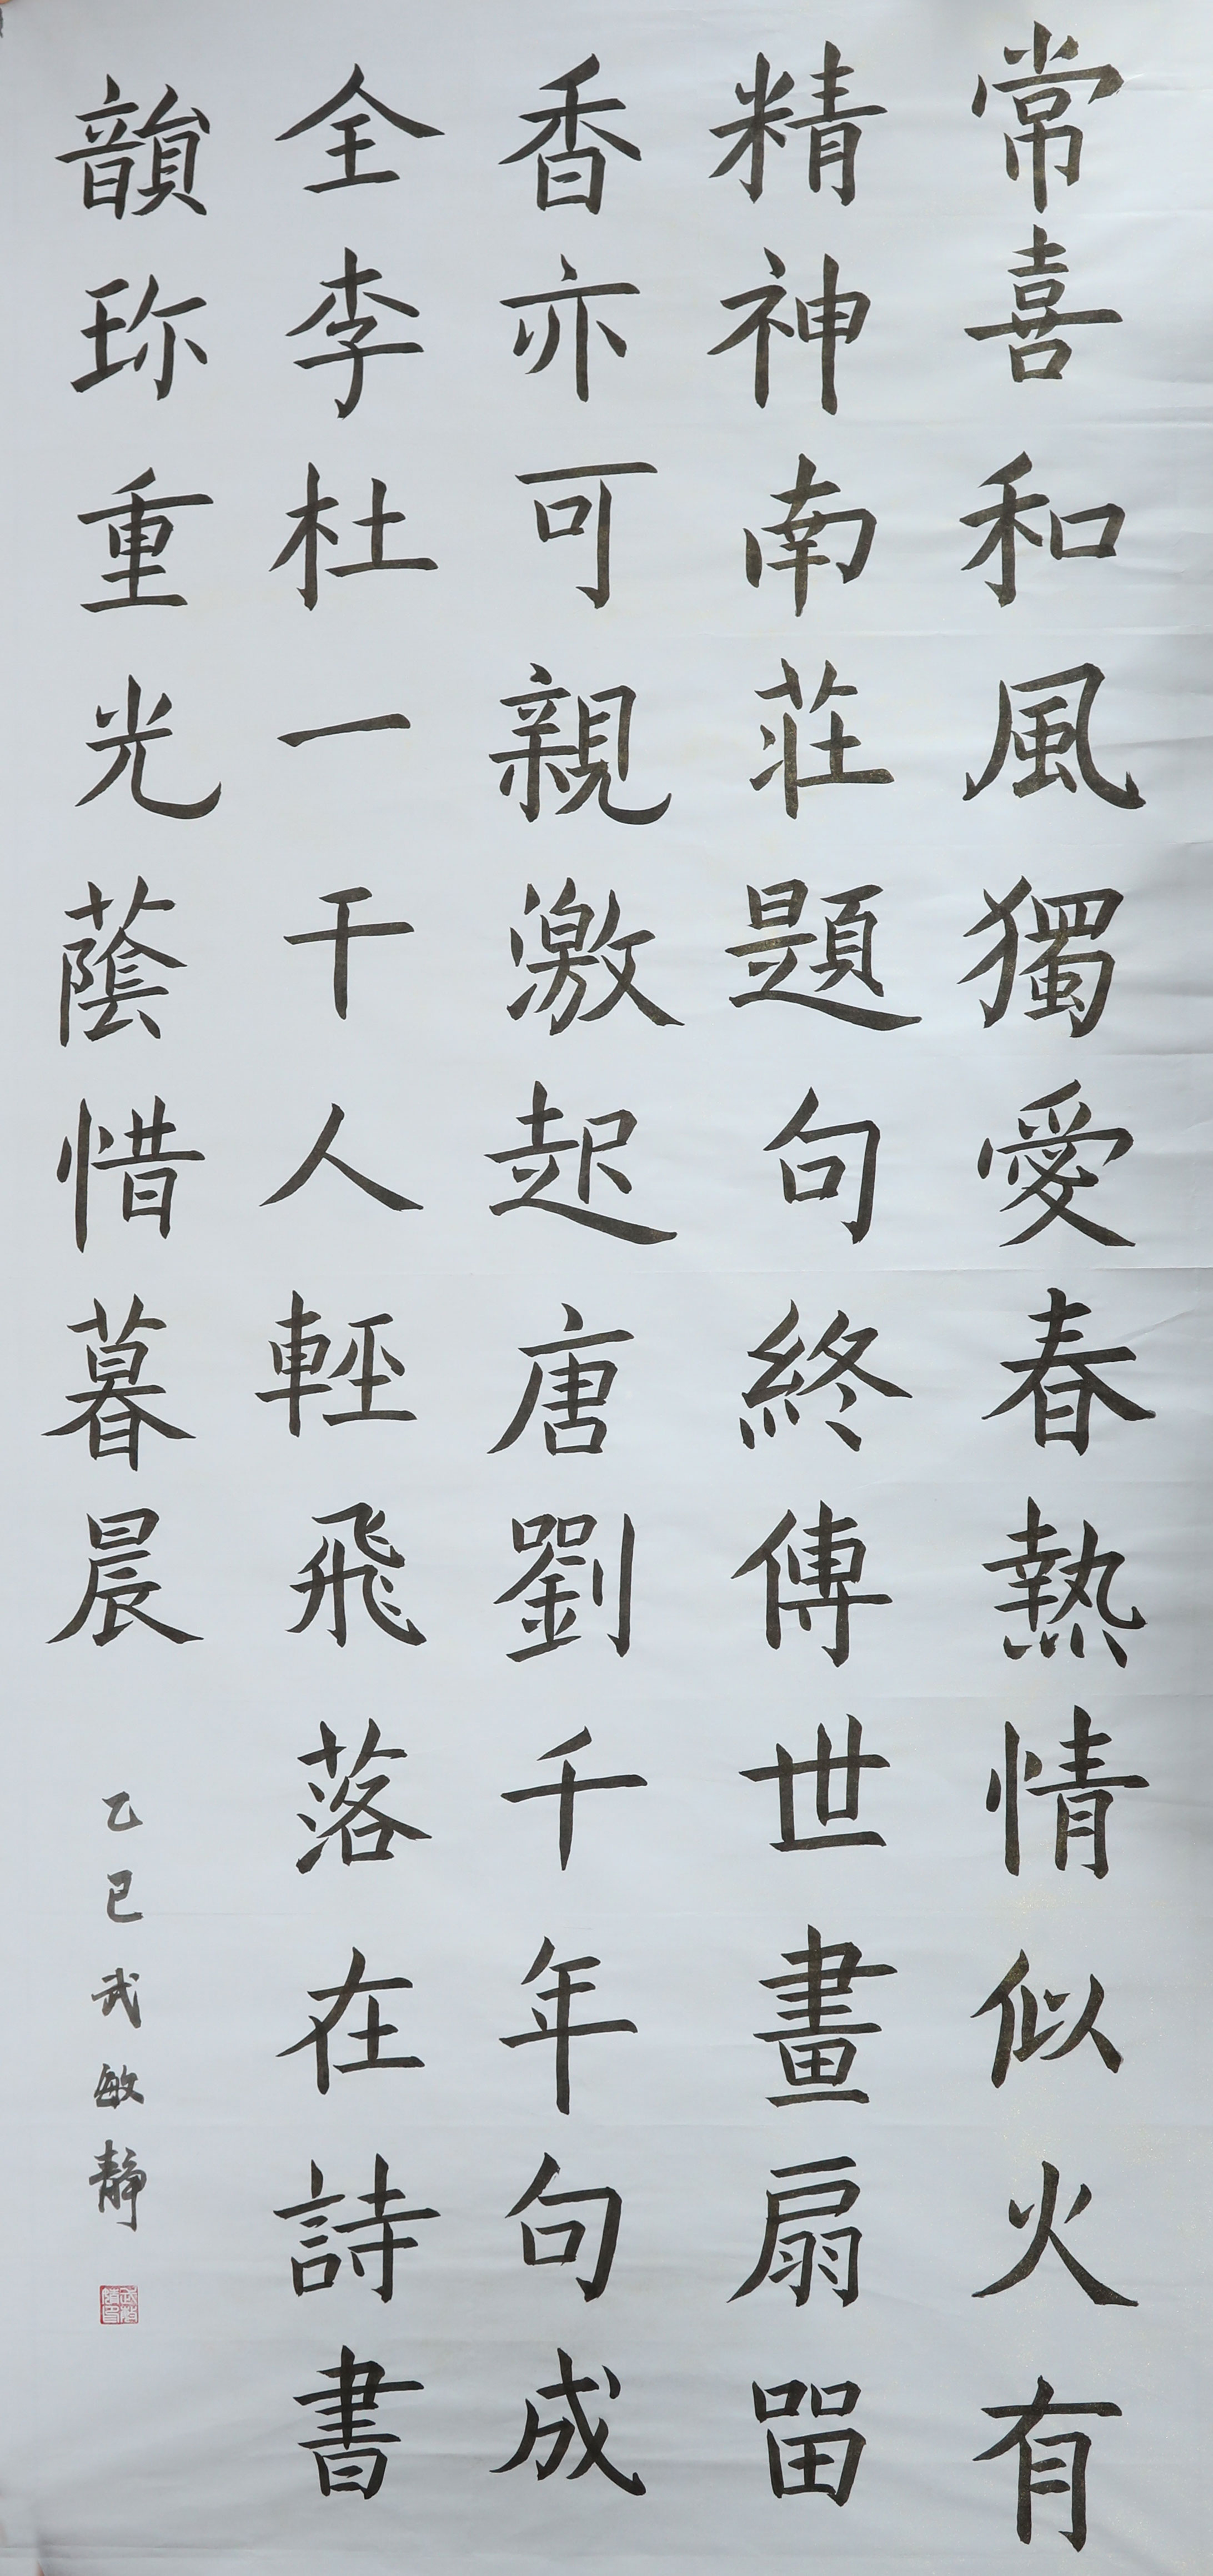 常喜和風獨愛春熱情似火有
精神南莊題句終傳世畫扇留
香亦可親激起唐劉千年句成
全李杜一干人輕飛落在詩書
韻珎重光蔭惜暮晨
乙巳武敏靜